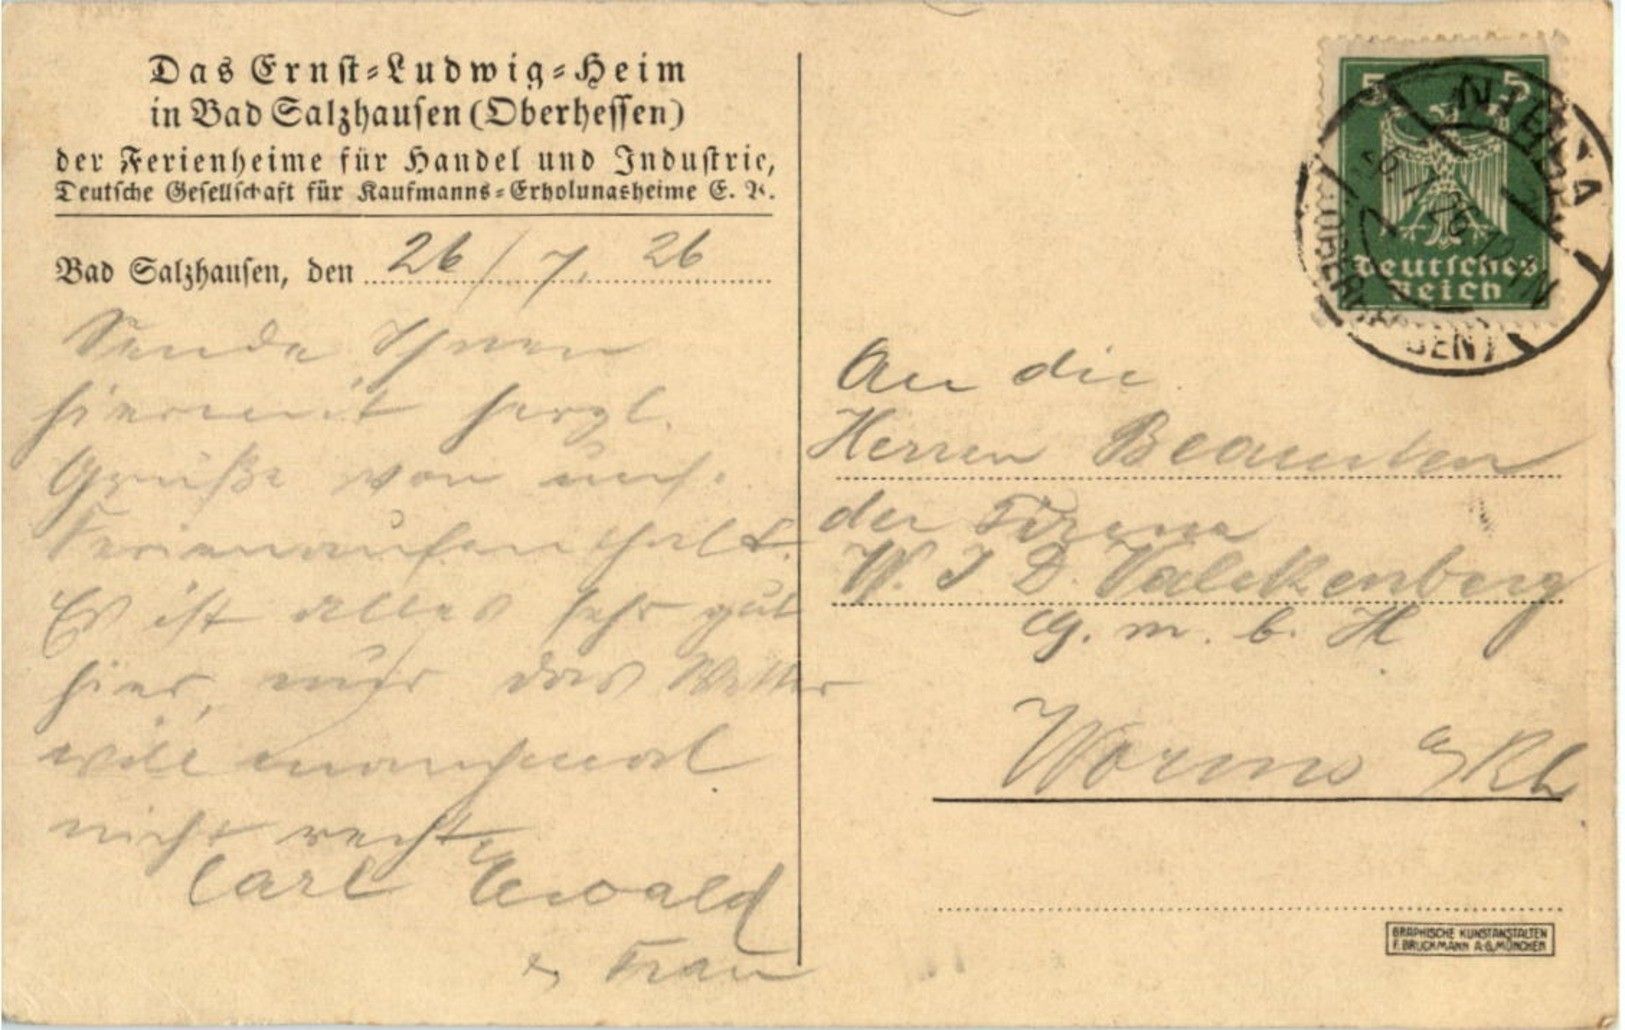 Das Ernst-Ludwig-Heim
in Bad Salzhausen (Oberhessen)
der Ferienheime für Handel und Industrie,
Deutsche Gesellschaft für Kaufmanns-Erholungsheime E. V.
Bad Salzhausen, den 26/7. 26
Sende Ihnen
hiermit herzl.
Grüße von uns.
Ferienaufenthalt.
Es ist alles sehr gut
hier, nur das Wetter
will manchmal
nicht recht.
Carl Ewald
u. Frau
5 5
Deutsches
Reich
NIDDA
26.7.26 12-1N
(OBERHESSEN)
An die
Herren Beamten
der Firma
W. J. D. Valckenberg
G. m. b. H
Worms a/Rh
GRAPHISCHE KUNSTANSTALTEN
F. BRUCKMANN A-G, MÜNCHEN